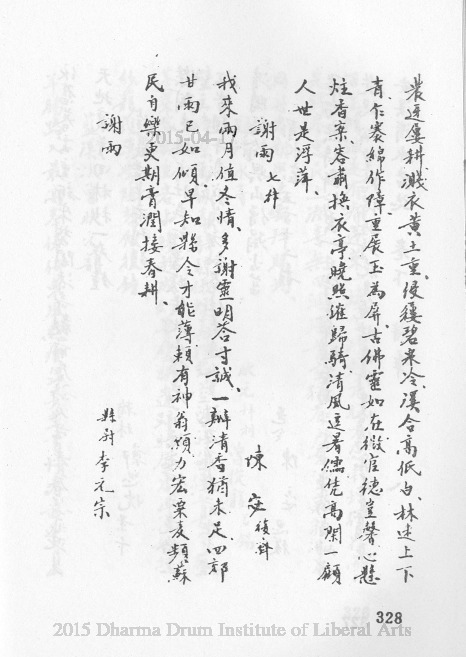 農逕屢耕濺衣黃土重侵鞋碧米冷溪合高低白林迷上下
青仁裘綿作障重展玉為屏古佛靈如在微官德豈馨心懸
炷香案容肅換衣亭曉照催歸騎清風逗暑儒先高閣一顧
人世是浮萍
謝雨七律
陳
我來兩月值冬晴多謝靈明答寸誠一瓣清香猶未足四郊
甘雨已如傾早知縣令才能薄賴有神翁願力宏粟麥頻蘇
民自樂更期膏潤接春耕
謝雨
縣尉李元宗
2015-04-1
328
2015 Dharma Drum Institute of Liberal Arts